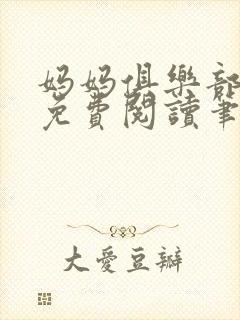 妈妈俱樂部
免費閱讀筆
大愛豆瓣